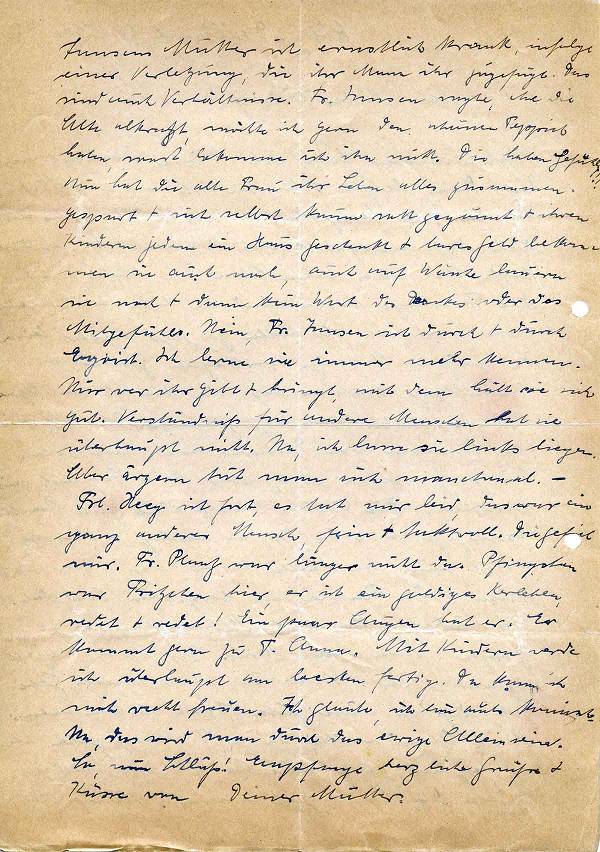 Jansens Mutter ist ernstlich krank, infolge
einer Verletzung, die ihr Mann ihr zugefügt. Das
sind auch Verhältnisse. Fr. Jansen sagte, ehe die
Alte abkratzt, möchte ich gern den Teppich
haben, sonst bekomme ich ihn nicht. Die haben Gefühl!!
Nun hat die alte Frau ihr Leben alles zusammen-
gespart + sich selbst kaum satt gegönnt + ihren
Kindern jedem ein Haus geschenkt + bares Geld bekom-
men sie auch noch, auch auf Wäsche lauern
sie noch + dann kein Wort des Dankes oder des
Mitgefühls. Nein, Fr. Jansen ist durch + durch
Egoist. Ich lerne sie immer mehr kennen.
Nur wer ihr gibt + bringt, mit dem hält sie sich
gut. Verständniß für andere Menschen hat sie
überhaupt nicht. Na, ich lasse sie links liegen.
Aber ärgern tut man sich manchmal. –
Frl. Heeg ist fort, es tat mir leid, das war ein
ganz anderer Mensch, fein + taktvoll. Die gefiel
mir. Fr. war länger nicht da. Pfingsten
war Fritzchen hier, er ist ein goldiges Kerlchen,
redet + redet! Ein paar Augen hat er. Er
kommt gern zu T. Anna. Mit Kindern werde
ich überhaupt am besten fertig. Da kann ich
mich recht freuen. Ich glaube, ich bin auch
Na, das wird man durch das ewige Alleinsein.
So, nun Schluß! Empfange herzliche Grüße +
Küsse von Deiner Mutter.